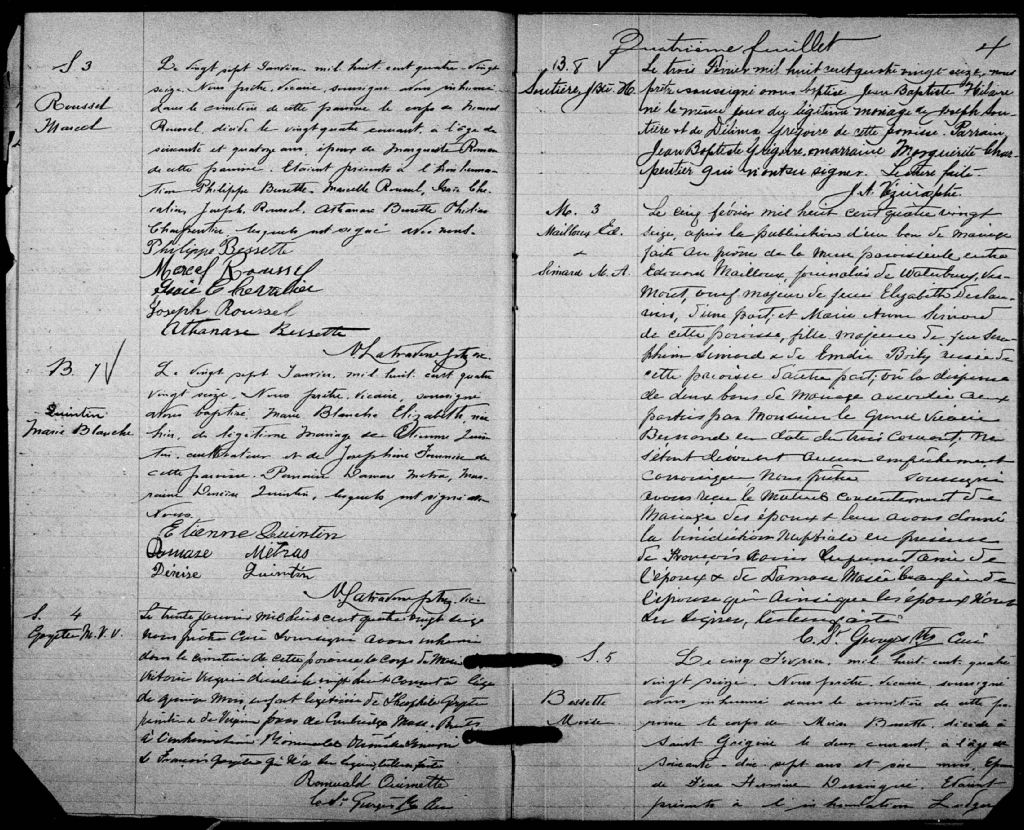 S 3
Roussel
Marcel
Le vingt sept Janvier mil huit cent quatre vingt
seize. Nous prêtre vicaire soussigné avons inhumé
dans le cimetière de cette paroisse le corps de Marcel
Roussel, décédé le vingt quatre courant, à l'âge de
soixante et quatorze ans époux de Marguerite
de cette paroisse. Etaient présents à l'inhuma-
tion Philippe Bessette Marcelle Roussel, Isaïe Che-
valier, Joseph Roussel, Athanase Bessette
Charpentier lesquels ont signé avec nous.
Philippe Bessette
Marcel Roussel
Isaïe Chevalier
Joseph Roussel
Athanase Bessette
B. 7
Quintin
Marie Blanche
Le vingt sept Janvier mil huit cent quatre
vingt seize. Nous prêtre vicaire, soussigné
avons baptisé, Marie Blanche Elizabeth née
hier, du légitime mariage de Etienne Quin-
tin cultivateur et de Joséphine de
cette paroisse. Parrain Damase Métras, Mar-
raine Quintin, lesquels ont signé avec
Nous
Etienne Quintin
Damase Métras
Quintin
S. 4
Goyette M. V. V.
Le trente janvier mil huit cent quatre vingt seize
nous prêtre Curé soussigné avons inhumé
dans le cimetière de cette paroisse le corps de Marie
Victoria décédée le vingt huit courant à l'âge
de quinze mois, enfant légitime de Théophile Goyette
peintre & de de Cambridge Mass. Présents
à l'inhumation Romuald Ouimette
& François Goyette qui n'a su signer, lecture faite
Romuald Ouimette
C. St Georges Ptre Curé
Quatrième feuillet
4
B. 8
Loutière, J Bte H.
Le trois Février mil huit cent quatre vingt seize, nous
prêtre soussigné avons baptisé Jean Baptiste Hilaire
né le même jour du légitime mariage de Joseph Lou-
tière et de Délima Grégoire de cette paroisse. Parrain
Jean Baptiste Grégoire, marraine Marguerite Char-
pentier qui n'ont su signer. Lecture faite.
M. 3
Mailloux Ed.
&
Simard M. A.
Le cinq février mil huit cent quatre vingt
seize, après la publication d'un ban de mariage
faite au prône de la messe paroissiale entre
Edouard Mailloux journalier de Waterbury, Ver-
mont, veuf majeur de feue Elizabeth Deslau-
riers, d'une part; et Marie Anne Simard
de cette paroisse, fille majeure de feu Séra-
phin Simard & de Emilie Boily aussi de
cette paroisse d'autre part; vu la dispense
de deux bans de mariage accordée aux
parties par Monsieur le Grand Vicaire
Bernard en date du trois courant; ne
s'étant découvert aucun empêchement
canonique Nous prêtre soussigné
avons reçu le mutuel consentement de
Mariage des époux & leur avons donné
la bénédiction Nuptiale en présence
de François Xavier ami de
l'époux & de Damase Massé beau frère de
l'épouse qui ainsi que les époux n'ont
su signer, lecture faite
C. St Georges Ptre Curé
S. 5
Bessette
Moïse
Le cinq Février, mil huit cent quatre
vingt seize. Nous prêtre, vicaire soussigné
avons inhumé dans le cimetière de cette pa-
roisse le corps de Moïse Bessette, décédé à
Saint Grégoire le deux courant à l'âge de
soixante dix sept ans et six mois, Epoux
de feue Hermine. Etaient
présents à l'inhumation